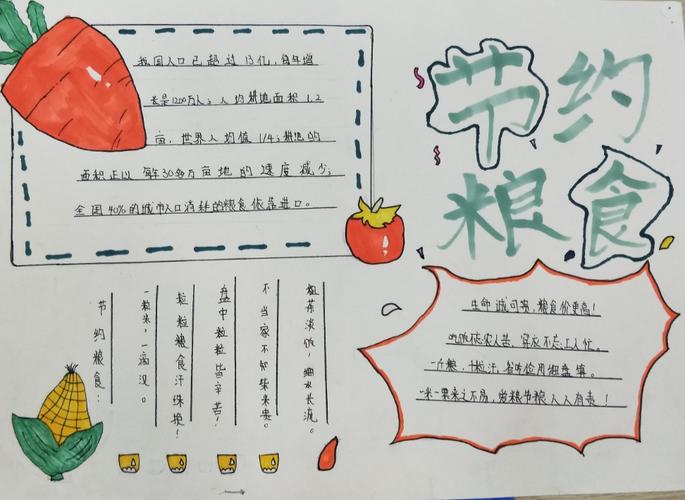 节约
粮食
我国人口已超过13亿,每年增
长是1200万人;人均耕地面积1.2
亩,世界人均值1/4;耕地的
面积正以每年30多万亩地的速度减少;
全国40%的城市人口消耗的粮食依靠进口。
节约粮食:
一粒米,一滴汉。
粒粒粮食汗珠换!
盘中粒粒皆辛苦!
不当家不知柴米贵。
粗茶淡饭,细水长流。
生命诚可贵,粮食价更高!
吃饭农人苦,穿衣不忘工人忙。
一斤粮,千粒汗,省吃俭用细盘算。
一米一果来之不易,粮节粮人人有责!